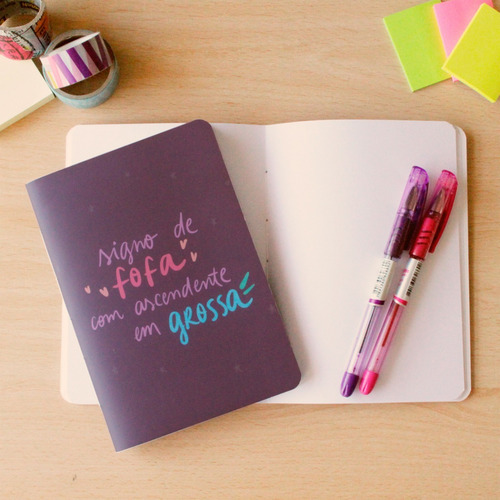 signo de
fofa
com ascendente
em grossa